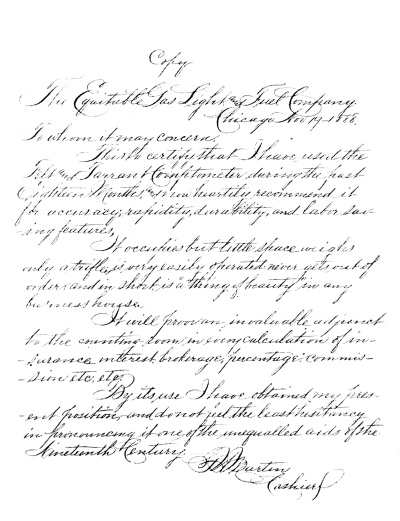 Copy
The Equitable Gas Light and Fuel Company
Chicago Nov 19 1888.
To whom it may concern,
This to certify that I have used the
Felt and Tarrant Comptometer during the past
Eighteen Months, and now heartily recommend it
for accuracy, rapidity, durability, and labor sav-
ing features,
It occupies but little space weighs
only a trifle, is very easily operated never gets out of
order and in short is "a thing of beauty" in any
business house.
It will prove an invaluable adjunct
to the counting room in every calculation of in-
surance interest, brokerage, percentage commis-
sion etc, etc,
By its use I have obtained my pres-
ent position, and do not feel the least hesitancy
in pronouncing it one of the unequalled aids of the
Nineteenth Century.
Burtin
Cashier